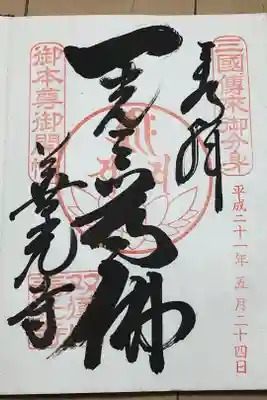 三國傳來御分身
奉拝
平成二十一年 五月二十四日
一光三尊佛
御本尊御開帳
善光寺